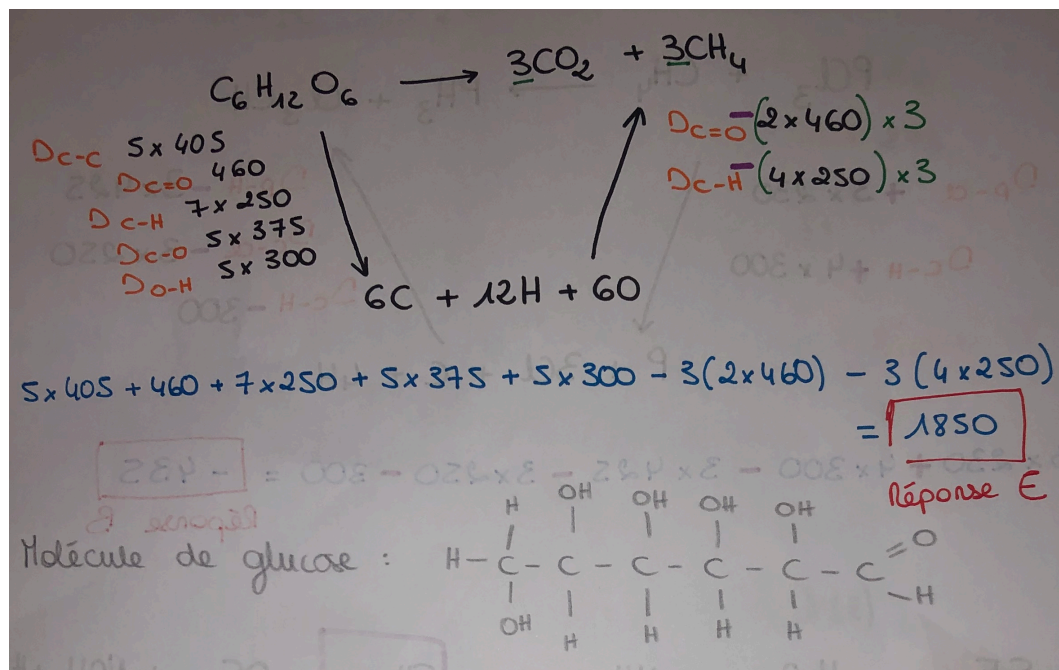 C₆H₁₂O₆ → 3CO₂ + 3CH₄
D_C-C 5 x 405
D_C=O 460
D_C-H 7 x 250
D_C-O 5 x 375
D_O-H 5 x 300
D_C=O -(2 x 460) x 3
D_C-H -(4 x 250) x 3
6C + 12H + 6O
5 x 405 + 460 + 7 x 250 + 5 x 375 + 5 x 300 - 3(2 x 460) - 3(4 x 250)
= 1850
Réponse E
H OH OH OH OH
Molécule de glucose : H - C - C - C - C - C - C = O
- H
OH H H H H